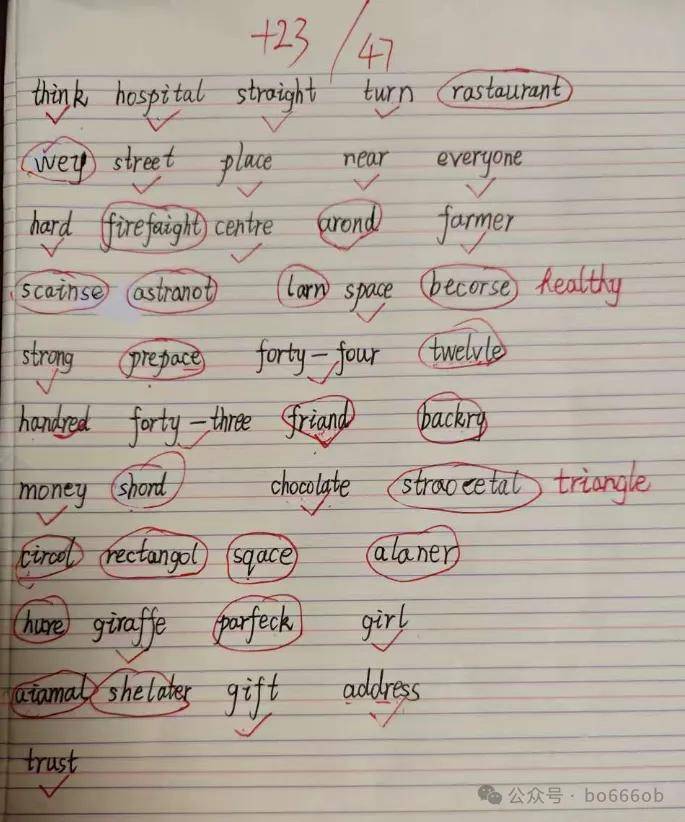 +23 / 47
think hospital straight turn rastaurant
wey street place near everyone
hard firefaight centre arond farmer
scainse astranot larn space becorse healthy
strong prepace forty-four twelvle
handred forty-three friand backry
money shord chocolate straocetal triangle
circol rectangol sqace alaner
hure giraffe parfeck girl
aiamal shelater gift address
trust
公众号 · bo666ob